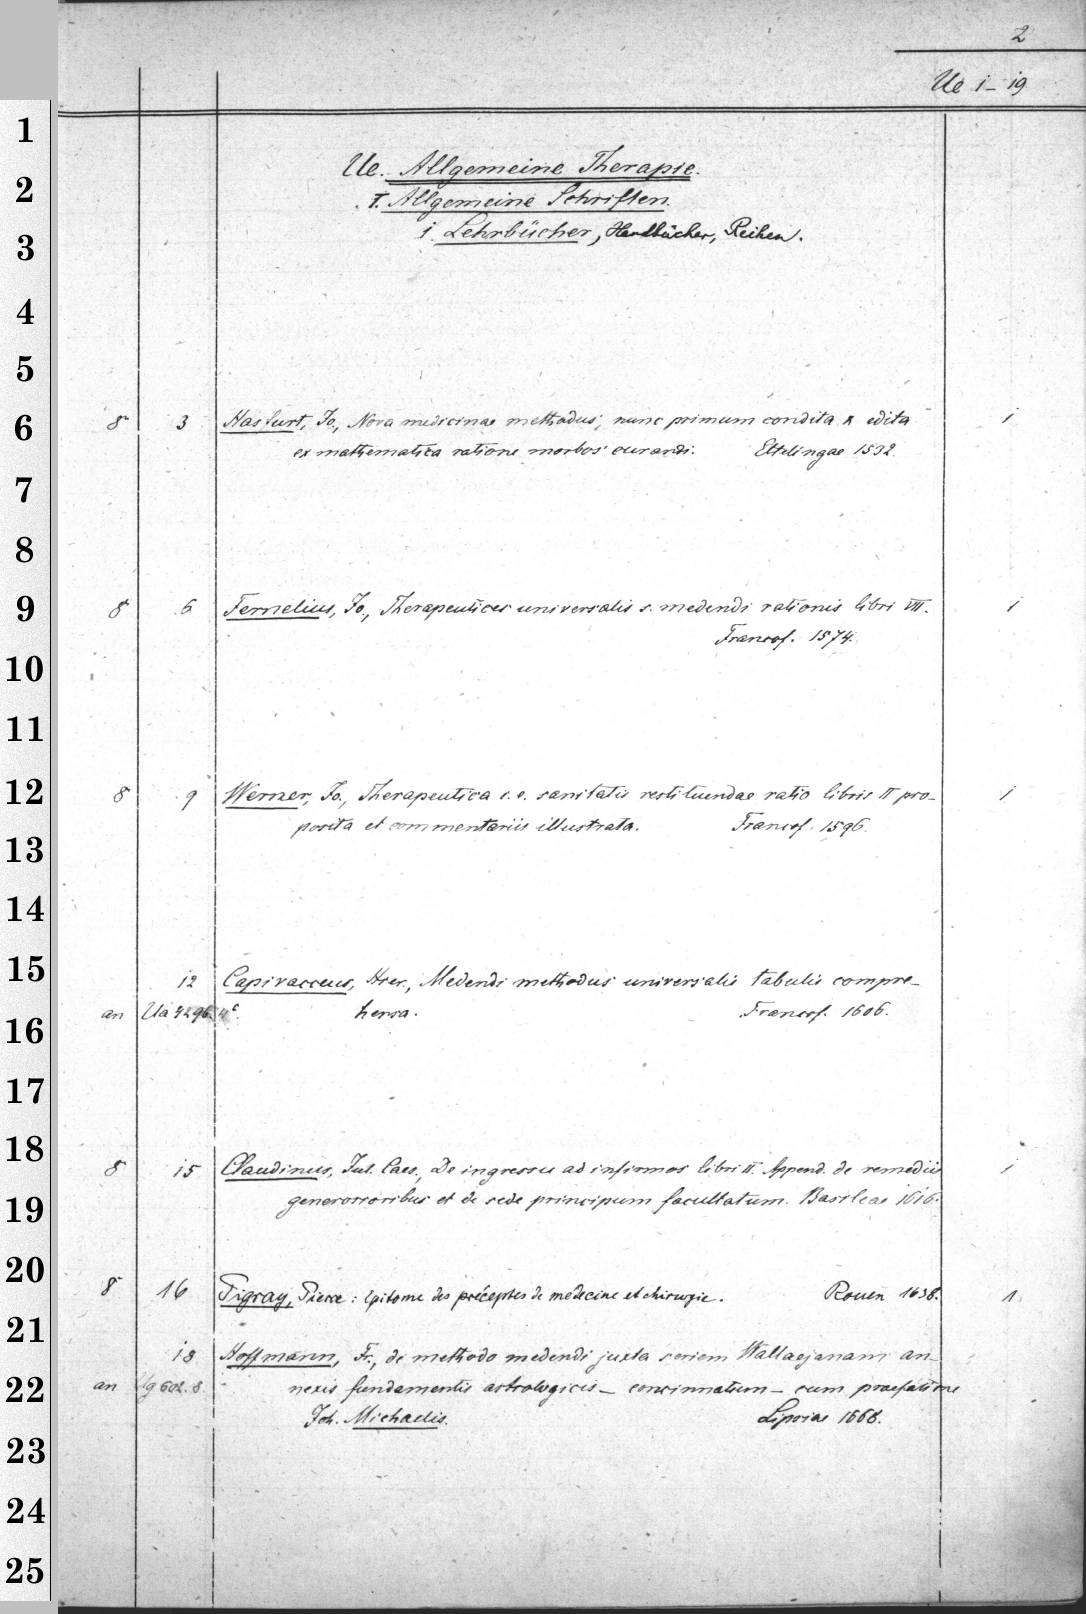 2
Ue 1-19
1
Ue. Allgemeine Therapie.
2
I. Allgemeine Schriften.
3
1. Lehrbücher, Handbücher, Reihen.
4
5
6
8 3 Hasfurt, Jo., Nova medicinae methodus, nunc primum condita & edita 1
ex mathematica ratione morbos curandi. Ettelingae 1532.
7
8
9
8 6 Fernelius, Jo., Therapeutices universalis s. medendi rationis libri VII. 1
Francof. 1574.
10
11
12
8 9 Werner, Jo., Therapeutica i. e. sanitatis restituendae ratio libris II pro- 1
posita et commentariis illustrata. Francof. 1596.
13
14
15
12 Capivacceus, Hier., Medendi methodus universalis tabulis compre-
16
an Ua 4296. 4° hensa. Francof. 1606.
17
18
8 15 Claudinus, Jul. Caes., De ingressu ad infirmos libri II. Append. de remediis 1
19
generosioribus et de sede principum facultatum. Basileae 1616.
20
8 16 Pigray, Pierre: Epitome des préceptes de médecine et chirurgie. Rouen 1638. 1
21
18 Hoffmann, Fr., de methodo medendi juxta seriem Wallaejanam an-
22
an Ug 602. 8 nexis fundamentis astrologicis - concinnatum - cum praefatione
Joh. Michaelis. Lipsiae 1668.
23
24
25